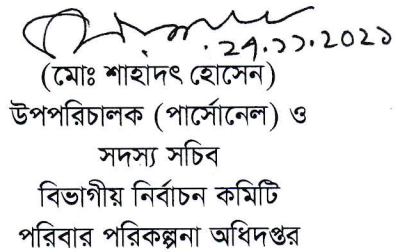 ২৭.১১.২০২১
(মোঃ শাহাদৎ হোসেন)
উপপরিচালক (পার্সোনেল) ও
সদস্য সচিব
বিভাগীয় নির্বাচন কমিটি
পরিবার পরিকল্পনা অধিদপ্তর